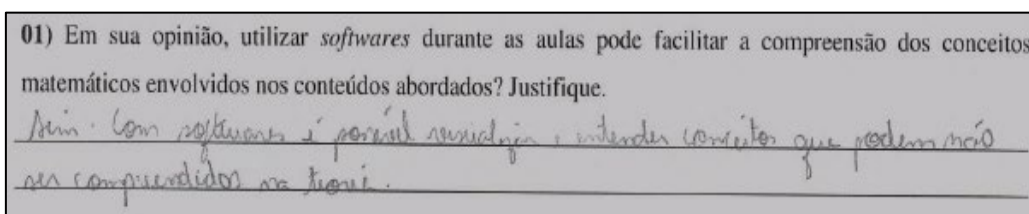 01) Em sua opinião, utilizar softwares durante as aulas pode facilitar a compreensão dos conceitos
matemáticos envolvidos nos conteúdos abordados? Justifique.
Sim. Com softwares é possível visualizar e entender conceitos que podem não
ser compreendidos na teoria.